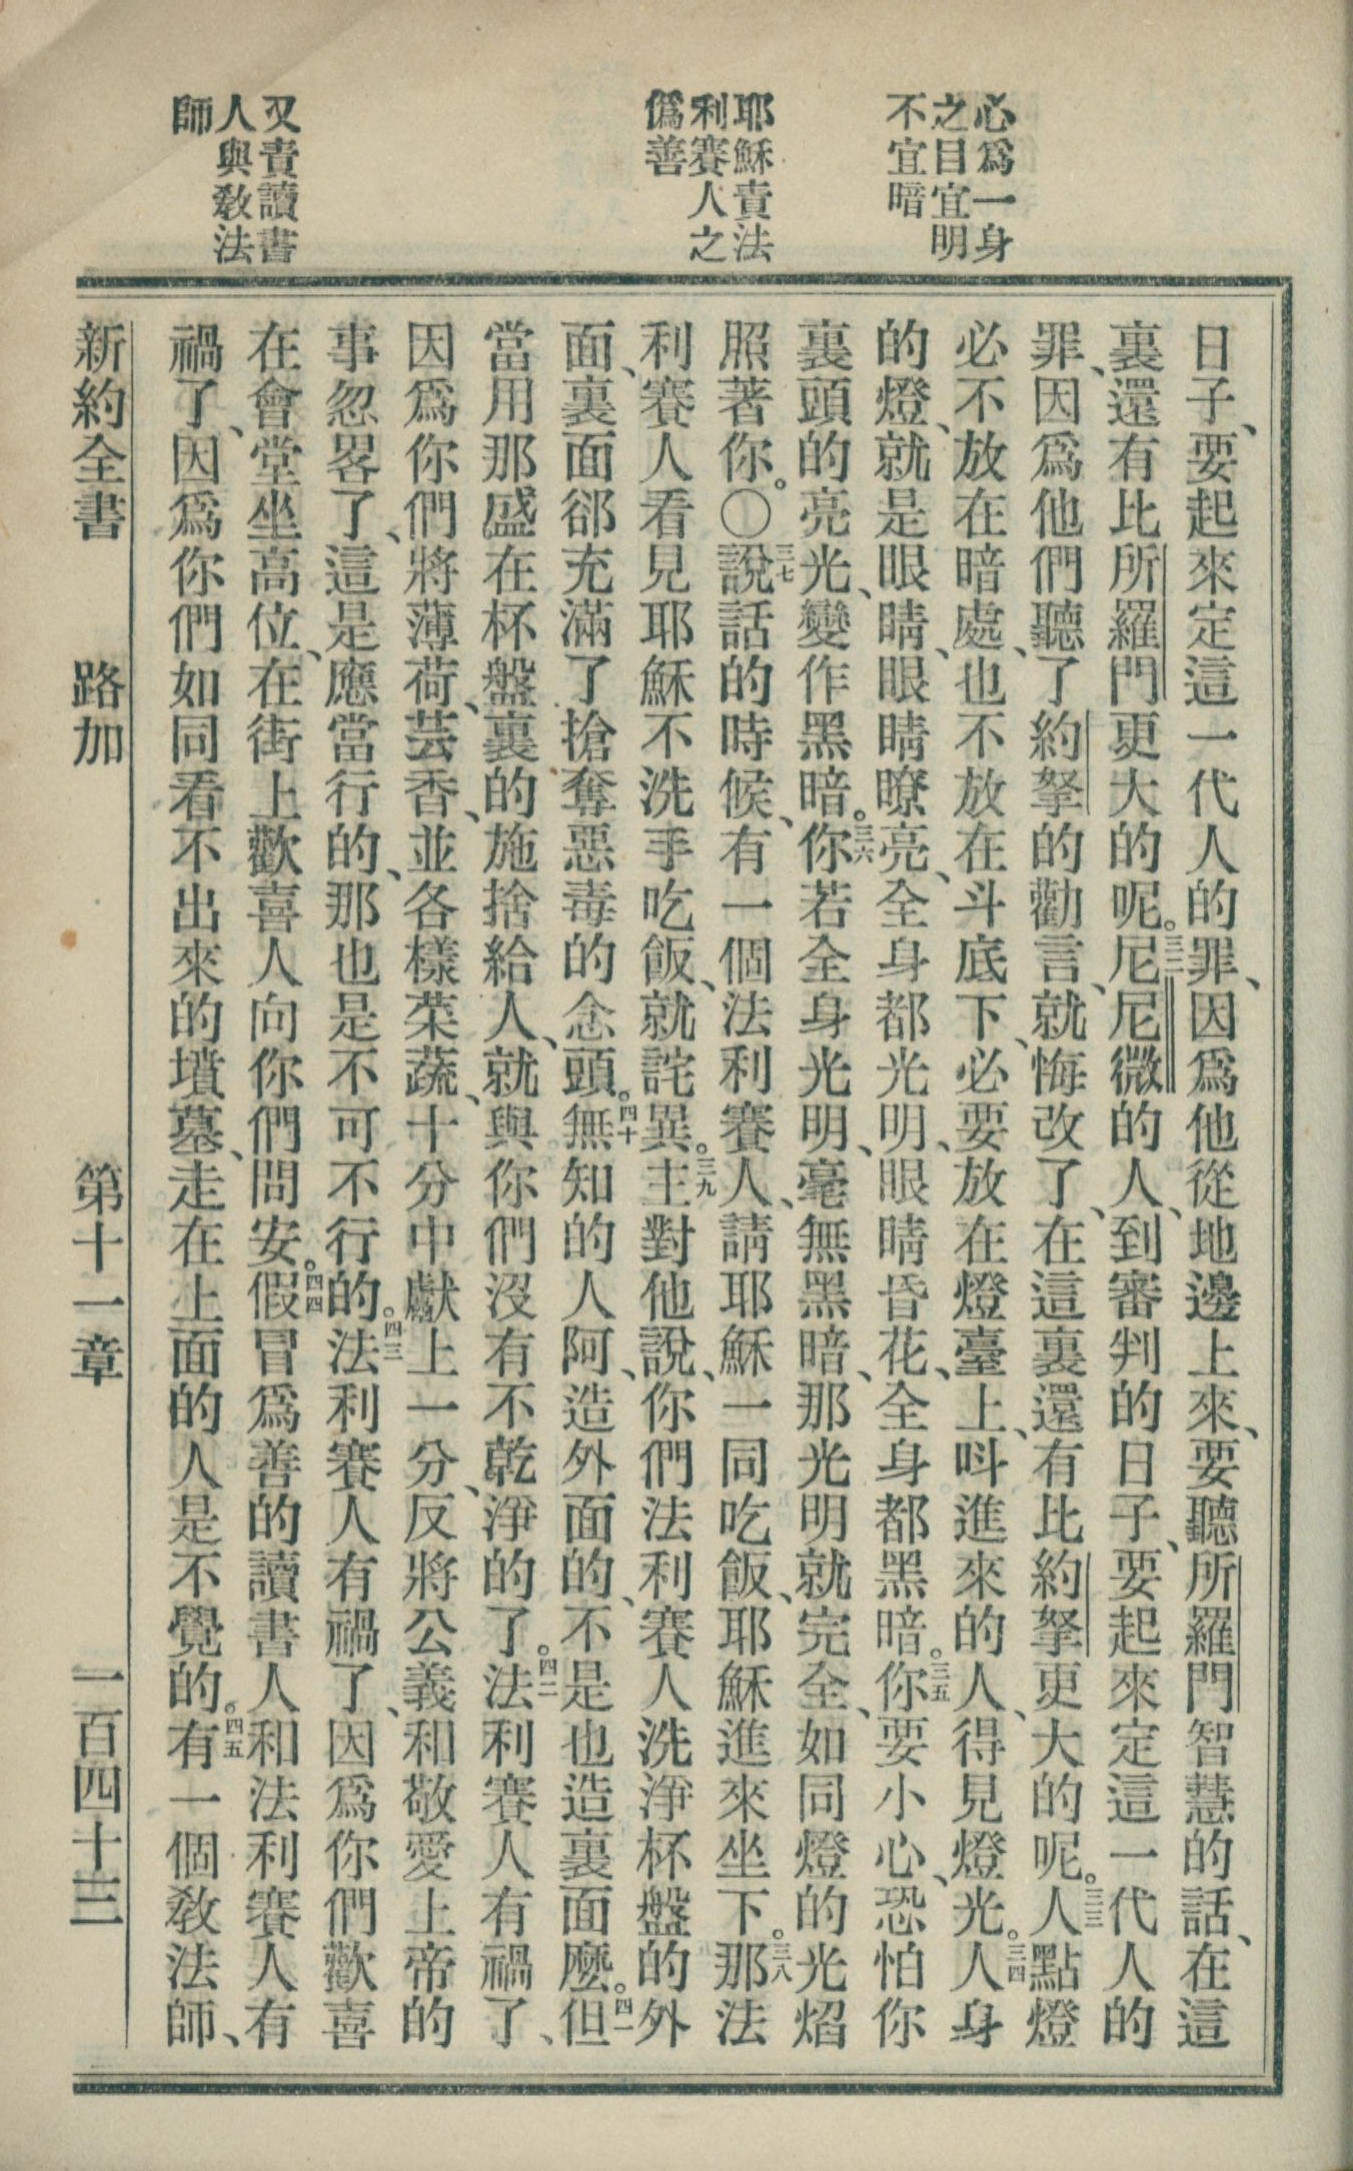 心爲一身
之目宜明
不宜暗
耶穌責法
利賽人之
僞善
又責讀書
人與敎法
師
日子、要起來定這一代人的罪、因爲他從地邊上來、要聽所羅門智慧的話、在這
裏還有比所羅門更大的呢。三二尼尼微的人、到審判的日子、要起來定這一代人的
罪、因爲他們聽了約拏的勸言、就悔改了、在這裏還有比約拏更大的呢。三三人點燈
必不放在暗處、也不放在斗底下、必要放在燈臺上、呌進來的人、得見燈光。三四人身
的燈、就是眼睛、眼睛瞭亮、全身都光明、眼睛昏花、全身都黑暗。三五你要小心、恐怕你
裏頭的亮光、變作黑暗。三六你若全身光明、毫無黑暗、那光明就完全、如同燈的光熖
照著你。〇三七說話的時候、有一個法利賽人、請耶穌一同吃飯、耶穌進來坐下。三八那法
利賽人看見耶穌不洗手吃飯、就詫異。三九主對他說、你們法利賽人洗淨杯盤的外
面、裏面郤充滿了搶奪惡毒的念頭。四十無知的人阿、造外面的、不是也造裏面麽。四一但
當用那盛在杯盤裏的施捨給人、就與你們沒有不乾淨的了。四二法利賽人有禍了、
因爲你們將薄荷、芸香、並各樣菜蔬、十分中獻上一分、反將公義和敬愛上帝的
事忽畧了、這是應當行的、那也是不可不行的。四三法利賽人有禍了、因爲你們歡喜
在會堂坐高位、在街上歡喜人向你們問安。四四假冒爲善的讀書人和法利賽人有
禍了、因爲你們如同看不出來的墳墓、走在上面的人是不覺的。四五有一個敎法師、
新約全書 路加 第十一章 一百四十三